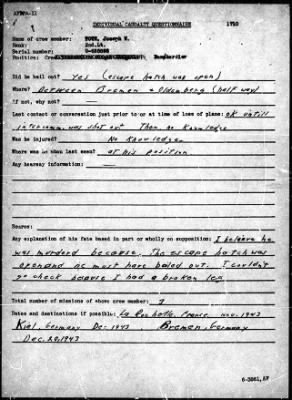 INDIVIDUAL CASUALTY QUESTIONNAIRE
Name of crew member: Joseph
Rank: 2nd.Lt.
Serial number:
Position: Bombardier
Did he bail out? Yes (escape hatch was open)
Where? Between Bremen & Oldenberg (half way)
If not, why not? —
Last contact or conversation just prior to or at time of loss of plane: OK until
intercomm. was shot out Then no Knowledge
Was he injured? No Knowledge
Where was he when last seen? at his position
Any hearsay information: —
Source: —
Any explanation of his fate based in part or wholly on supposition: I believe he
was murdered because. The escape hatch was
open and he must have bailed out. I couldn't
go check because I had a broken leg
Total number of missions of above crew member: 3
Dates and destinations if possible: La Rochelle, France, Nov. 1943
Kiel, Germany Dec. 1943, Bremen, Germany
Dec. 20, 1943
6-3861,AF